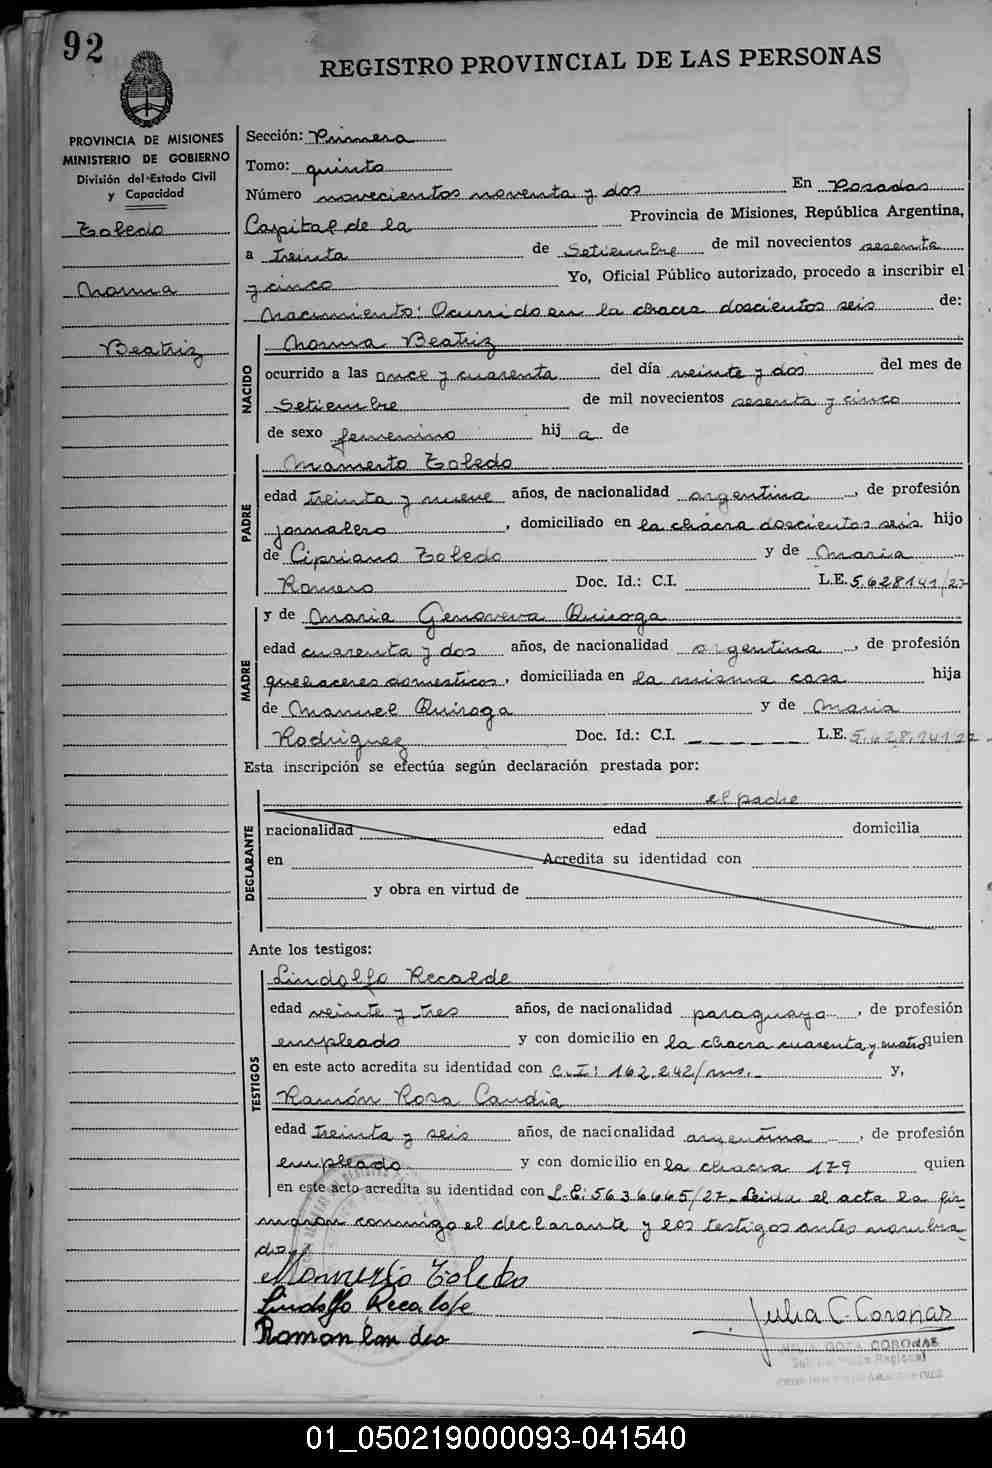 92
REGISTRO PROVINCIAL DE LAS PERSONAS
PROVINCIA DE MISIONES
MINISTERIO DE GOBIERNO
División del Estado Civil
y Capacidad
Toledo
Norma
Beatriz
Sección: Primera
Tomo: quinto
Número novecientos noventa y dos En Posadas
Capital de la Provincia de Misiones, República Argentina,
a treinta de Setiembre de mil novecientos sesenta
y cinco Yo, Oficial Público autorizado, procedo a inscribir el
Nacimiento: Ocurrido en la chacra doscientos seis de:
NACIDO
Norma Beatriz
ocurrido a las once y cuarenta del día veinte y dos del mes de
Setiembre de mil novecientos sesenta y cinco
de sexo femenino hij a de
PADRE
Mamerto Toledo
edad treinta y nueve años, de nacionalidad argentina, de profesión
jornalero, domiciliado en la chacra doscientos seis hijo
de Cipriano Toledo y de Maria
Romero Doc. Id.: C.I. L.E. 5.628141/27
MADRE
y de Maria Genoveva Quiroga
edad cuarenta y dos años, de nacionalidad argentina, de profesión
quehaceres domesticos, domiciliada en la misma casa hija
de Manuel Quiroga y de Maria
Rodriguez Doc. Id.: C.I. _ _ _ _ _ _ L.E. 5.628.141/27
Esta inscripción se efectúa según declaración prestada por:
DECLARANTE
el padre
nacionalidad edad domicilia
en Acredita su identidad con
y obra en virtud de
Ante los testigos:
TESTIGOS
Lindolfo Recalde
edad veinte y tres años, de nacionalidad paraguaya, de profesión
empleado y con domicilio en la chacra cuarenta y cuatro quien
en este acto acredita su identidad con C.I: 162.242/ms.- y,
Ramón Rosa Candia
edad treinta y seis años, de nacionalidad argentina, de profesión
empleado y con domicilio en la chacra 179 quien
en este acto acredita su identidad con L.E: 5636665/27-Leida el acta la fir
maron conmigo el declarante y los testigos antes nombra-
dos
Mamerto Toledo
Lindolfo Recalde
Julia C. Coronas
Ramon Candia
CORONAS
01_050219000093-041540